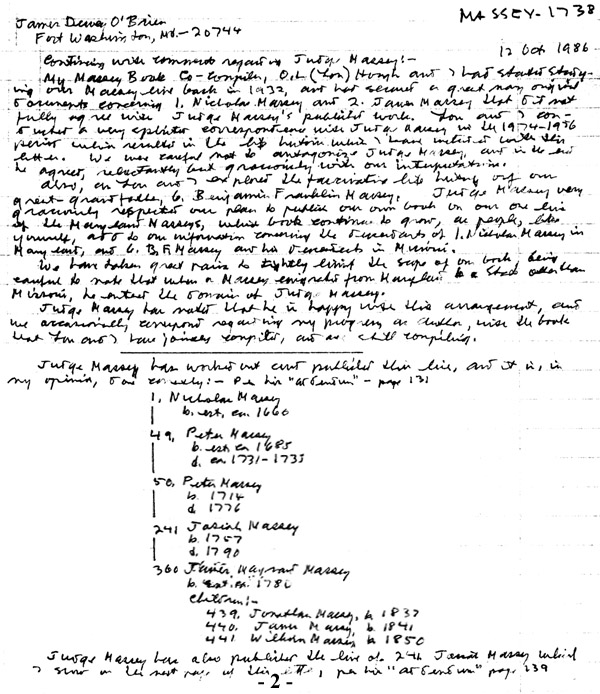 James Dewey O'Brien
MASSEY-1738
Fort Washington, Md.-20744
12 Oct 1986
Continuing with comments regarding Judge Massey:-
My Massey Book Co-compiler, and I had started study-
ing our Massey line back in 1932, and had secured a great many original
documents concerning 1. Nicholas Massey and 2. James Massey that did not
fully agree with Judge Massey's published work. and I con-
ducted a very spirited correspondence with Judge Massey in the 1974-1976
period which resulted in the
letter. We were careful not to antagonize Judge Massey, and in the end
he agreed, reluctantly but graciously with our interpretations.
Also, and I explored the fascinating life history of our
great-grandfather, 6. Benjamin Franklin Massey. Judge Massey very
graciously respected our plan to publish our own book on our one line
of the Maryland Masseys, which book continues to grow, as people, like
yourself, add to our information concerning the descendants of 1. Nicholas Massey in
Maryland, and 6. B.F. Massey and his descendants in Missouri.
We have taken great pains to tightly limit the scope of our book, being
careful to note that when a Massey emigrated from Maryland to a State other than
Missouri, he enters the domain of Judge Massey.
Judge Massey has noted that he is happy with this arrangement, and
we occasionally correspond regarding my progress as author, with the book
that and I have jointly compiled, and are still compiling.
Judge Massey has worked out and published this line, and it is, in
my opinion, done correctly:- Per his "addendum" - page 131
1. Nicholas Massey
b. est. ca. 1660
49. Peter Massey
b. est. ca 1685
d. ca 1731-1735
50. Peter Massey
b. 1714
d. 1776
241 Josiah Massey
b. 1757
d. 1790
360 James Maynard Massey
b. est. ca. 1780
Children:-
439. Jonathan Massey, b. 1837
440. James Massey, b. 1841
441 William Massey b. 1850
Judge Massey has also published the line of 242 James Massey which
I show on the next page of this letter, per his "addendum" page 139
-2-